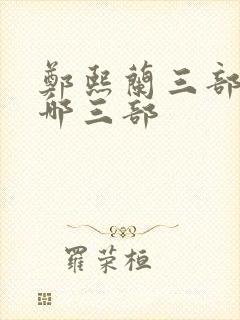 鄭熙蘭三部
哪三部
羅荣桓